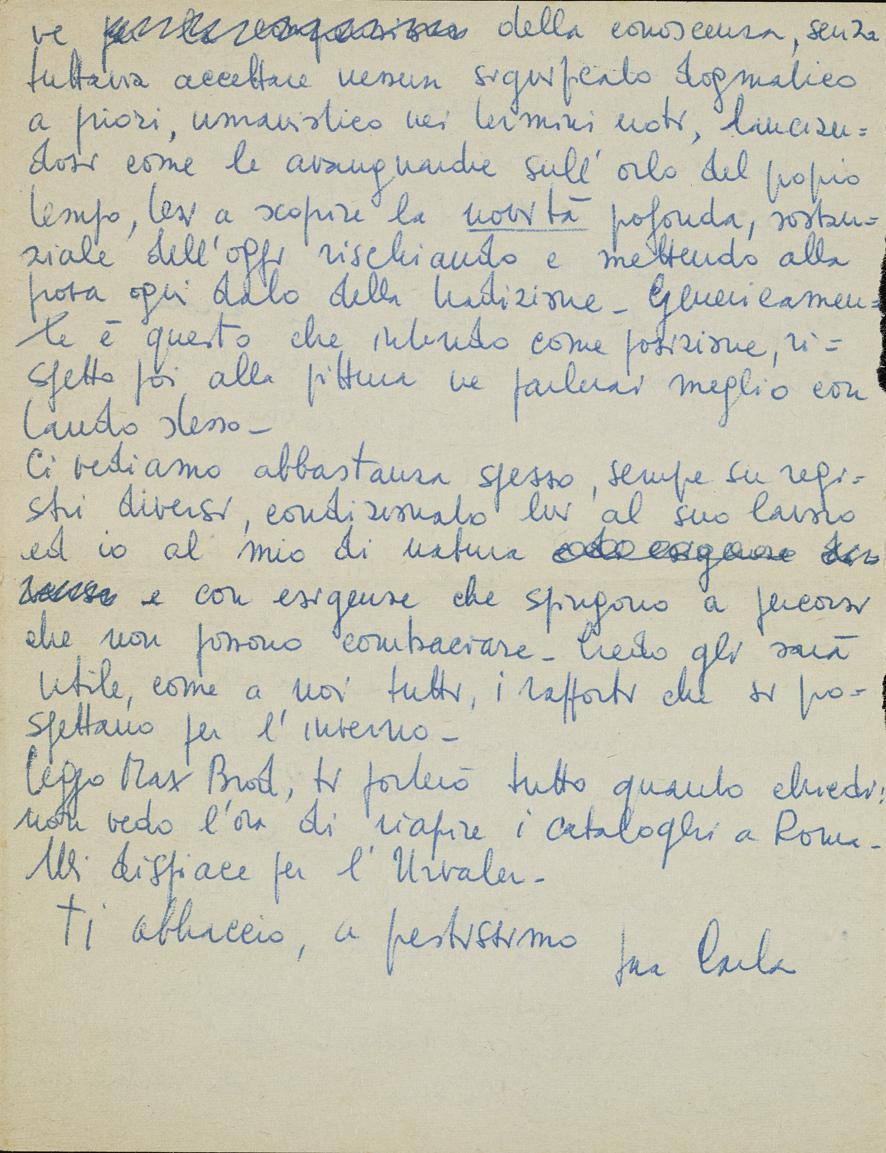 ve della conoscenza, senza
tuttavia accettare nessun significato dogmatico
a priori, umanistico nei termini noti, lancian=
dosi come le avanguardie sull'orlo del proprio
tempo, tesi a scoprire la novità profonda, sostan=
ziale dell'oggi rischiando e mettendo alla
prova ogni dato della tradizione_ Genericamen=
te è questo che intendo come posizione, ri=
spetto poi alla pittura ne parlerai meglio con
Lando stesso_
Ci vediamo abbastanza spesso, sempre su regi=
stri diversi, condizionato lui al suo lavoro
ed io al mio di natura
e con esigenze che spingono a percorsi
che non possono combaciare_ Credo gli sarà
utile, come a noi tutti, i rapporti che si pro=
spettano per l'inverno_
Leggo Max Brod, ti porterò tutto quanto chiedi;
non vedo l'ora di riaprire i cataloghi a Roma_
Mi dispiace per l'
Ti abbraccio, a prestissimo
tua Carla